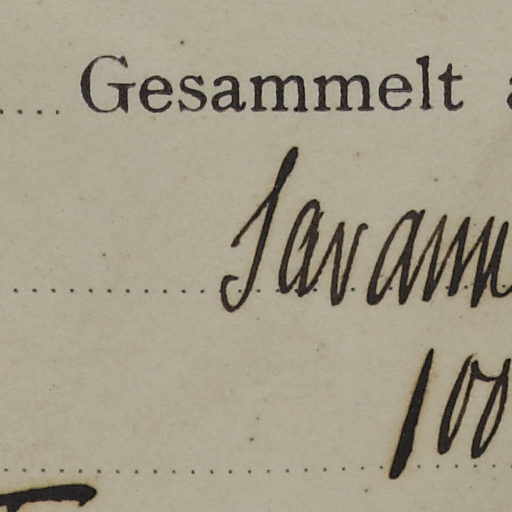 Gesammelt
Savann
100